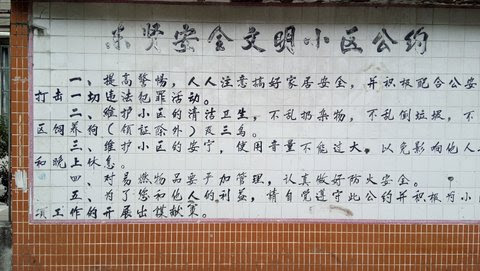 东贤安全文明小区公约
一、提高警惕，人人注意搞好家居安全，并积极配合公安
打击一切违法犯罪活动。
二、维护小区的清洁卫生，不乱扔杂物，不乱倒垃圾，不
区饲养狗（领证除外）及三鸟。
三、维护小区的安宁，使用音量不能过大，以免影响他人
和晚上休息。
四、对易燃物品要予加管理，认真做好防火安全。
五、为了您和他人的利益，请自觉遵守此公约并积极为小
项工作的开展出谋献策。